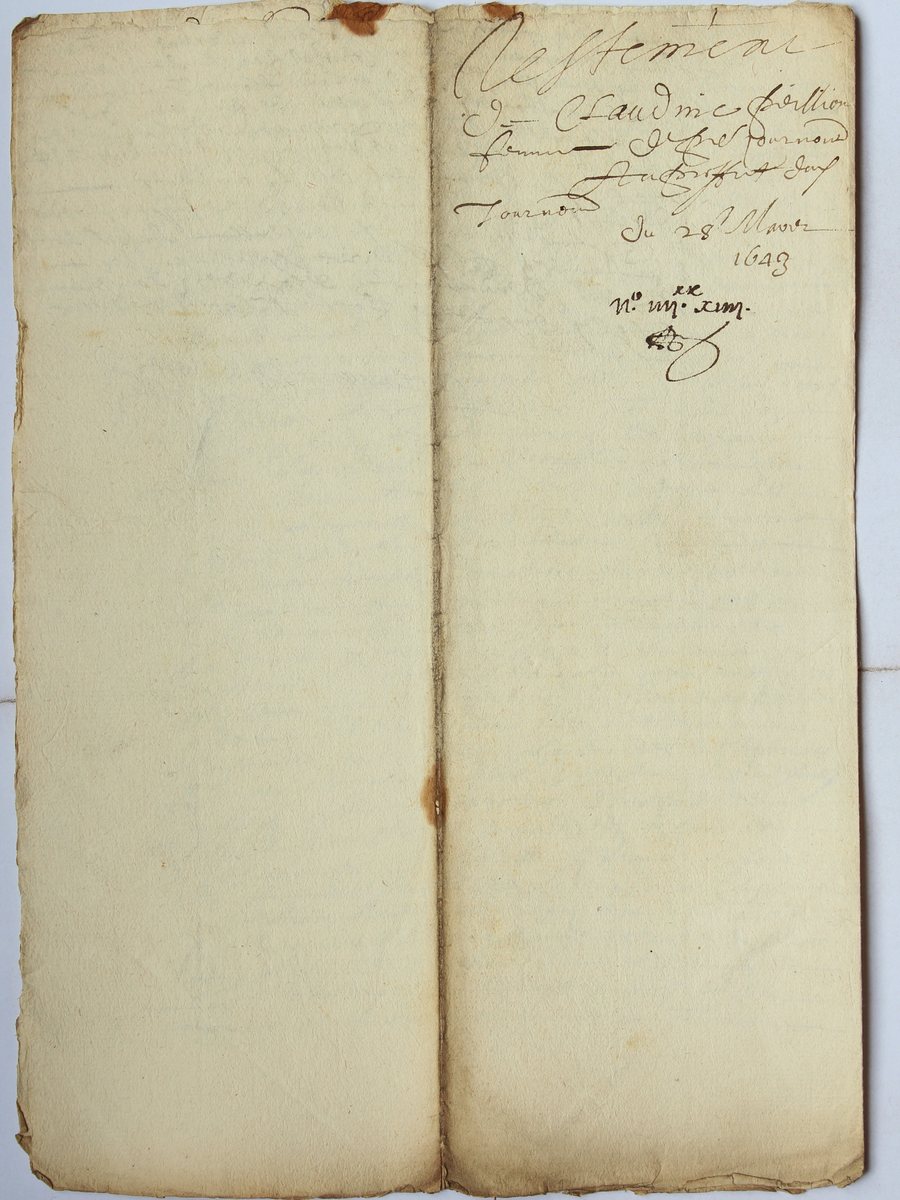 Testement
de Claudine peillion
femme de pre Tournond
Tournond
du 28e Mars
1643
No. iiijxx. xiiij.